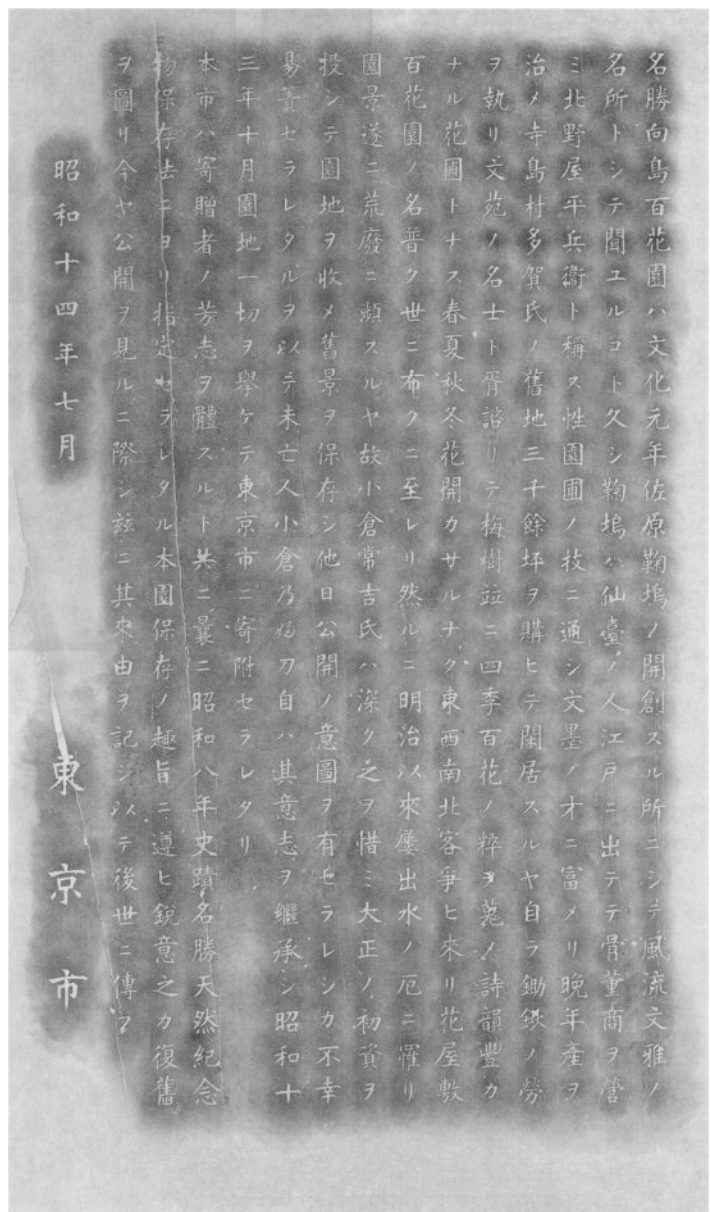 名勝向島百花園ハ文化元年佐原鞠塢ノ開創スル所ニシテ風流文雅ノ
名所トシテ聞ユルコト久シ鞠塢ハ仙臺ノ人江戸ニ出テテ骨董商ヲ營
ミ北野屋平兵衞ト稱ス性園圃ノ技ニ通シ文墨ノ才ニ富メリ晩年產ヲ
治メ寺島村多賀氏ノ舊地三千餘坪ヲ購ヒテ閑居スルヤ自ラ鋤鍬ノ勞
ヲ執リ文苑ノ名士ト胥諮リテ梅樹竝ニ四季百花ノ粹ヲ蒐メ詩韻豐カ
ナル花圃トナス春夏秋冬花開カサルナク東西南北客爭ヒ來リ花屋敷
百花園ノ名普ク世ニ布クニ至レリ然ルニ明治以來屢出水ノ厄ニ罹リ
園景遂ニ荒廢ニ瀕スルヤ故小倉常吉氏ハ深ク之ヲ惜ミ大正ノ初資ヲ
投シテ園地ヲ收メ舊景ヲ保存シ他日公開ノ意圖ヲ有セラレシカ不幸
易簀セラレタルヲ以テ未亡人小倉乃ぶ刀自ハ其意志ヲ繼承シ昭和十
三年十月園地一切ヲ擧ケテ東京市ニ寄附セラレタリ
本市ハ寄贈者ノ芳志ヲ體スルト共ニ曩ニ昭和八年史蹟名勝天然紀念
物保存法ニヨリ指定セラレタル本園保存ノ趣旨ニ遵ヒ銳意之カ復舊
ヲ圖リ今ヤ公開ヲ見ルニ際シ玆ニ其來由ヲ記シ以テ後世ニ傳フ
昭和十四年七月
東京市